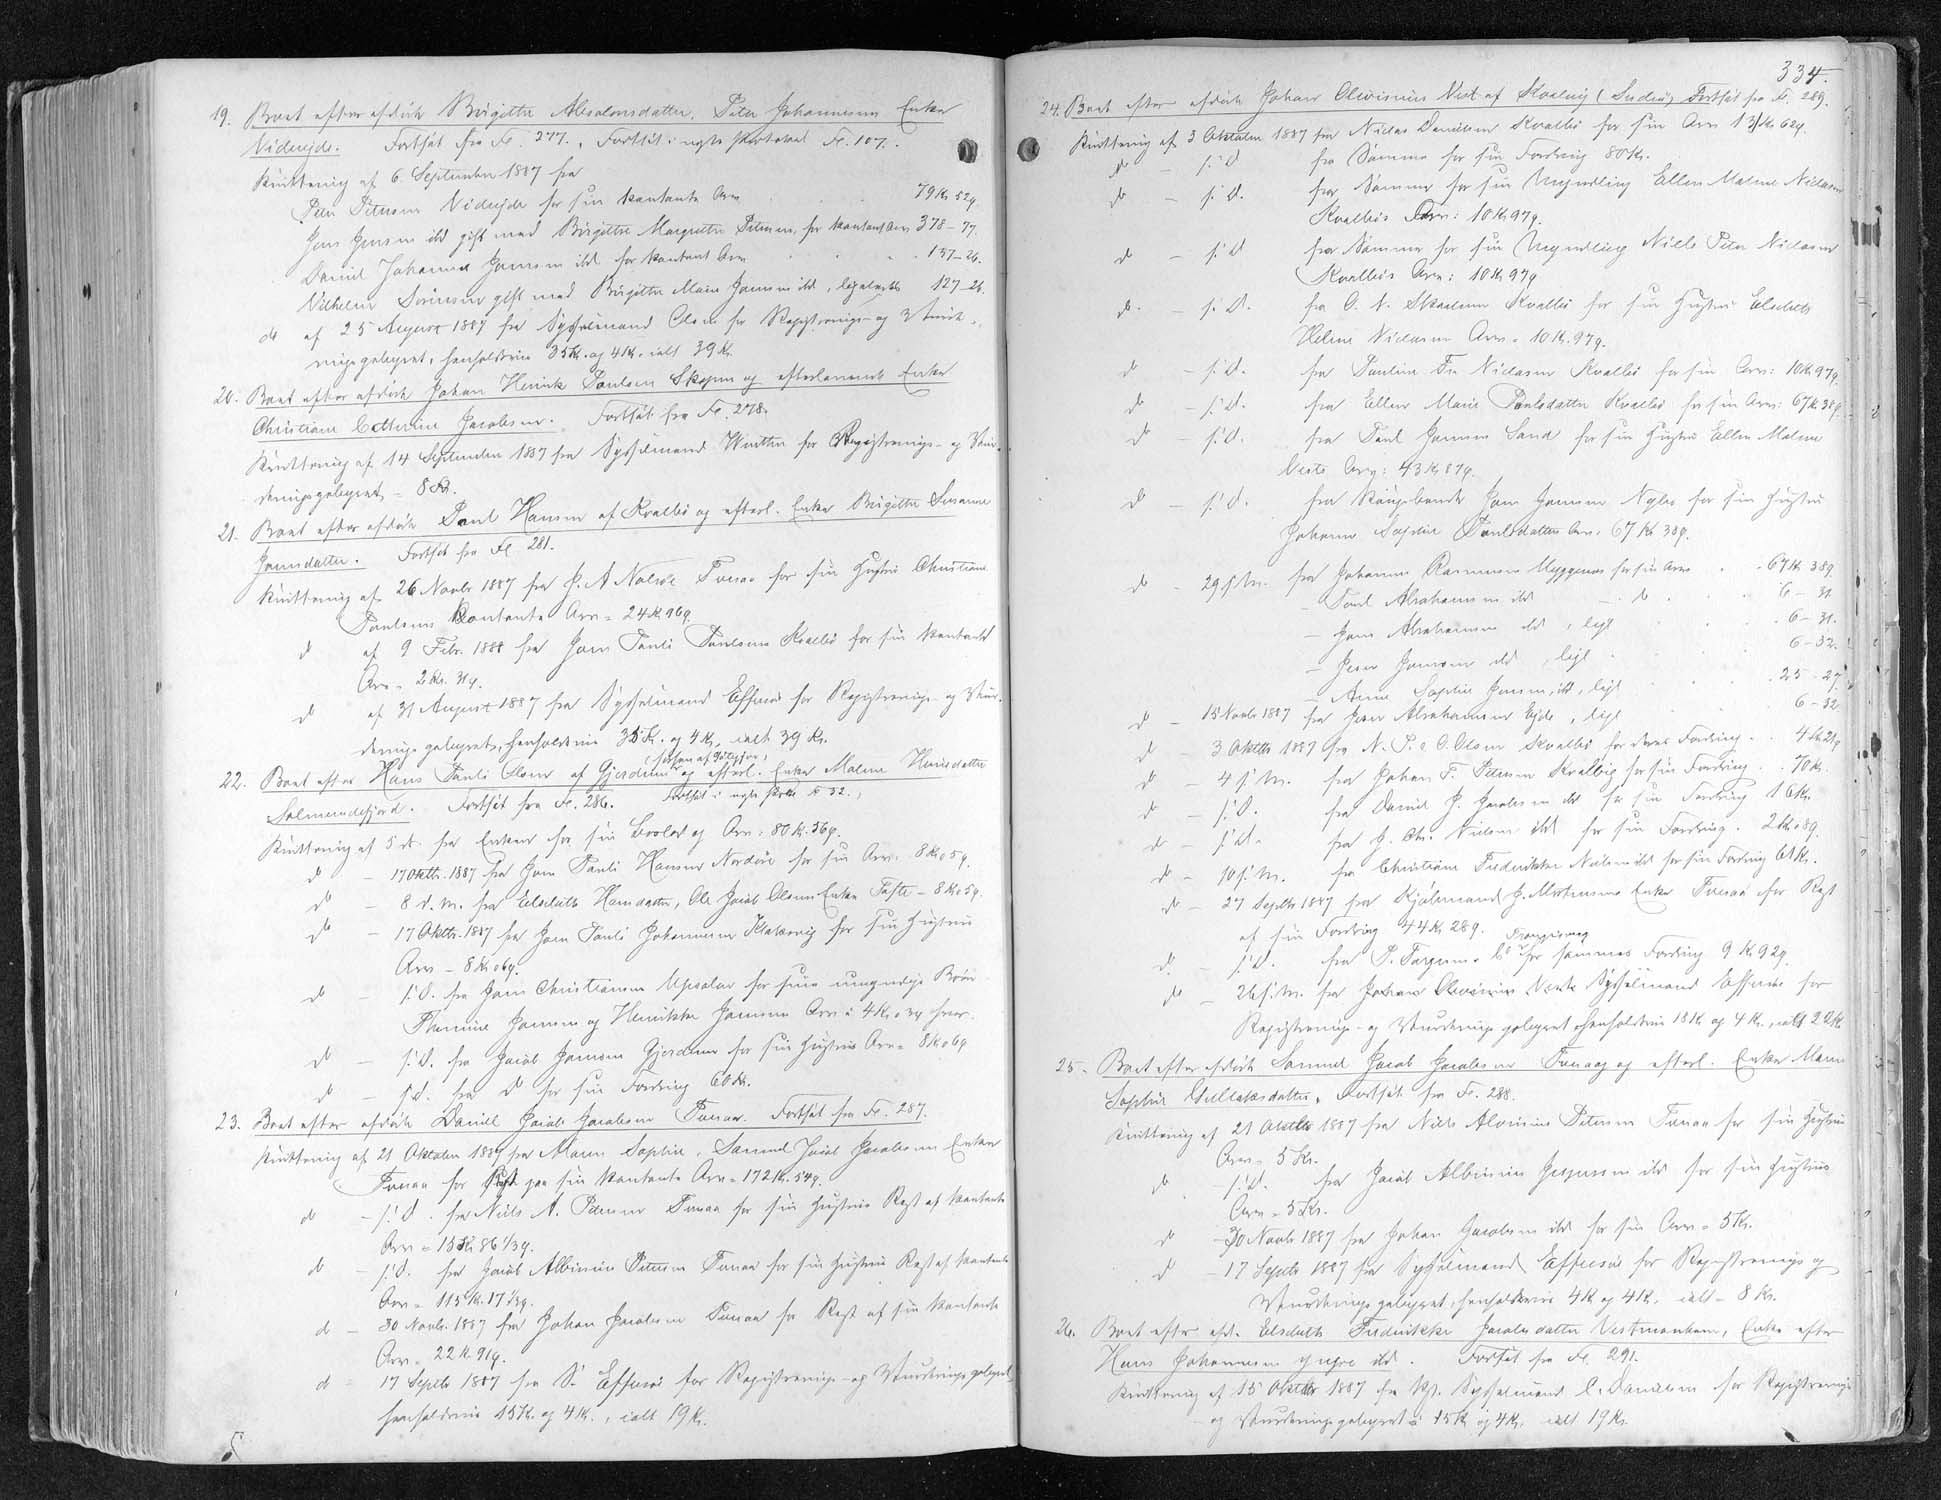 19. Boet efter afdøde Birgitte Absalonsdatter, Peter Johannesens Enke
Viderejde. Fortsat fra Fl. 277. Fortsat i nyt Protokol Fl. 107.
Kvittering af 6. September 1887 fra
Peter Petersen Viderejde for sin kontante Arv 79 Kr 52 ø.
Jens Jensen ibd gift med Birgitte Margrethe Petersen, for kontant Arv 378 - 77.
Daniel Johannes Jensen ibd for kontant Arv 157 - 26.
Vilhelm Sørensen gift med Birgitte Marie Jensen ibd, ligeledes 127 - 26.
do af 25 August 1887 fra Sysselmand Olsen for Registrerings- og Vurde-
ringsgebyret, henholdsvis 35 Kr. og 4 Kr. ialt 39 Kr.
20. Boet efter afdøde Johan Henrik Poulsen Skopen og efterlevende Enke
Christiane Cathrine Jacobsen. Fortsat fra Fl. 278.
Kvittering af 14 September 1887 fra Sysselmand Winther for Registrerings- og Vur-
deringsgebyret = 8 Kr.
21. Boet efter afdøde Poul Hansen af Kvalbø og efterl. Enke Birgitte Susanne
Joensdatter. Fortsat fra Fl. 281.
Kvittering af 26 Novbr 1887 fra J. A Nolsøe Tveraa for sin Hustru Christiane
Poulsens kontante Arv = 24 Kr 96 ø.
do af 9 Febr. 1888 fra Joen Pauli Poulsen Kvalbø for sin kontante
Arv = 2 Kr. 31 ø.
do af 31 August 1887 fra Sysselmand Effersøe for Registrerings- og Vur-
derings gebyret, henholdsvis 35 Kr. og 4 Kr, ialt 39 Kr.
22. Boet efter Hans Pauli Olsen af Gjerdum og efterl. Enke Malene Hansdatter
Solmundefjord. Fortsat fra Fl. 286. Fortsat i nyt Prot. Fl. 32.
Kvittering af 5 dt. fra Enken for sin Boslod og Arv: 80 Kr. 56 ø.
do - 17 Oktbr. 1887 fra Joen Pauli Hansen Nordøre for sin Arv: 8 Kr 05 ø.
do - 8 d. M. fra Elsebeth Hansdatter, Ole Jacob Olsens Enke Tofte - 8 Kr 05 ø.
do - 17 Oktbr. 1887 fra Joen Pauli Johannesen Klaksvig for sin Hustrus
Arv - 8 Kr 06 ø.
do - s: D. fra Joen Christiansen Upsalar for sine umyndige Børn
Thomine Joensen og Henrikke Joensen Arv à 4 Kr. 03 ø hver.
do - s: D. fra Jacob Joensen Gjerdum for sin Hustrus Arv = 8 Kr 06 ø
do - s: d. fra do for sin Fordring 60 Kr.
23. Boet efter afdøde Daniel Jacob Jacobsen Tveraa. Fortsat fra Fl. 287.
Kvittering af 21 Oktober 1887 fra Maren Sophie, Samuel Jacob Jacobsens Enke
Tveraa for Rest paa sin kontante Arv = 172 Kr. 54 ø.
do - s: D. fra Niels A. Petersen Tveraa for sin Hustrus Rest af kontante
Arv = 15 Kr 86 1/3 ø.
do - s: D. fra Jacob Albinius Petersen Tveraa for sin Hustrus Rest af kontante
Arv = 115 Kr. 17 1/3 ø.
do - 30 Novbr. 1887 fra Johan Jacobsen Tveraa for Rest af sin kontante
Arv = 22 Kr. 91 ø.
do - 17 Septbr 1887 fra S. Effersøe for Registrerings- og Vurderings gebyret
henholdsvis 15 Kr. og 4 Kr., ialt 19 Kr.
334.
24. Boet efter afdøde Johan Olevinius Vest af Kvalvig (Suderø) Fortsat fra Fl. 289.
Kvittering af 3 Oktober 1887 fra Niclas Danielsen Kvalbø for sin Arv 13 Kr 62 ø.
do - s: D fra Samme for sin Fordring 80 Kr.
do - s: D. fra Samme for sin Myndling Ellen Malene Niclasen
Kvalbøs Arv: 10 Kr 97 ø.
do - s: D fra Samme for sin Myndling Niels Peter Niclasen
Kvalbøs Arv: 10 Kr 97 ø
do. - s: D. fra O. N. Skaalum Kvalbø for sin Hustru Elsebeth
Helene Niclasens Arv = 10 Kr. 97 ø.
do - s: D. fra Pauline Niclasen Kvalbø for sin Arv: 10 Kr 97 ø.
do - s: D. fra Ellen Marie Poulsdatter Kvalbø for sin Arv: 67 Kr. 38 ø.
do s: D. fra Poul Joensen Sand for sin Hustru Ellen Malene
Vests Arv: 43 Kr 87 ø.
do - s: D. fra Kongsbonde Joen Joensen Nybø for sin Hustru
Johanne Sophie Poulsdatters Arv. 67 Kr 38 ø.
do - 29 s: M. fra Johanne Rasmussen Myggenæs for sin Arv 67 Kr 38 ø
- Poul Abrahamsen ibd - do 6 - 31
- Joen Abrahamsen ibd, ligl 6 - 31.
- Joen Joensen ibd, ligl 6 - 32.
- Anne Sophie Jensen, ibd, ligl 25 - 27
do - 15 Novbr 1887 fra Joen Abrahamsen Ejde, ligl 6 - 32
do - 3 Oktbr 1887 fra N. P. & O. Olsen Kvalbø for deres Fordring 4 Kr 21 ø
do - 4 s: M. fra Johan F. Petersen Kvalvig for sin Fordring 70 Kr.
do - s: D. fra Daniel J. Jacobsen ibd for sin Fordring 16 Kr.
do - s: d. fra J. Chr. Nielsen ibd for sin Fordring. 2 Kr 08 ø.
do - 10 s: M. fra Christiane Frederikke Nielsen ibd for sin Fordring 61 Kr.
do - 27 Septbr 1887 fra Kjøbmand J. Mortensens Enke Tveraa for Rest
af sin Fordring 44 Kr 28 ø.
do - s: D. fra P. Turgensen Co Frangisvaag for sammes Fordring 9 Kr 92 ø
do - 26 s: M. fra Johan Olevinius Vests Sysselmand Effersøe for
Registrerings- og Vurderings gebyret henholdsvis 18 Kr og 4 Kr., ialt 22 Kr
25. Boet efter afdøde Samuel Jacob Jacobsen Tveraa og efterl. Enke Maren
Sophie Gullaksdatter, Fortsat fra Fl. 288.
Kvittering af 21 Oktbr 1887 fra Niels Alvinius Petersen Tveraa for sin Hustrus
Arv = 5 Kr.
do s: D. fra Jacob Albinius Jespersen ibd for sin Hustrus
Arv = 5 Kr.
do - 30 Novbr 1887 fra Johan Jacobsen ibd for sin Arv = 5 Kr.
do - 17 Septbr 1887 fra Sysselmand Effersøe for Registrerings og
Vurderings gebyret, henholdsvis 4 Kr og 4 Kr, ialt = 8 Kr.
26. Boet efter afd. Elsebeth Frederikke Jacobsdatter Vestmanhavn, Enke efter
Hans Johannesen yngre ibd. Fortsat fra Fl. 291.
Kvittering af 15 Oktbr 1887 fra Kst. Sysselmand C. Danielsen for Registrerings
- og Vurderingsgebyret à 15 Kr og 4 Kr, ialt 19 Kr.